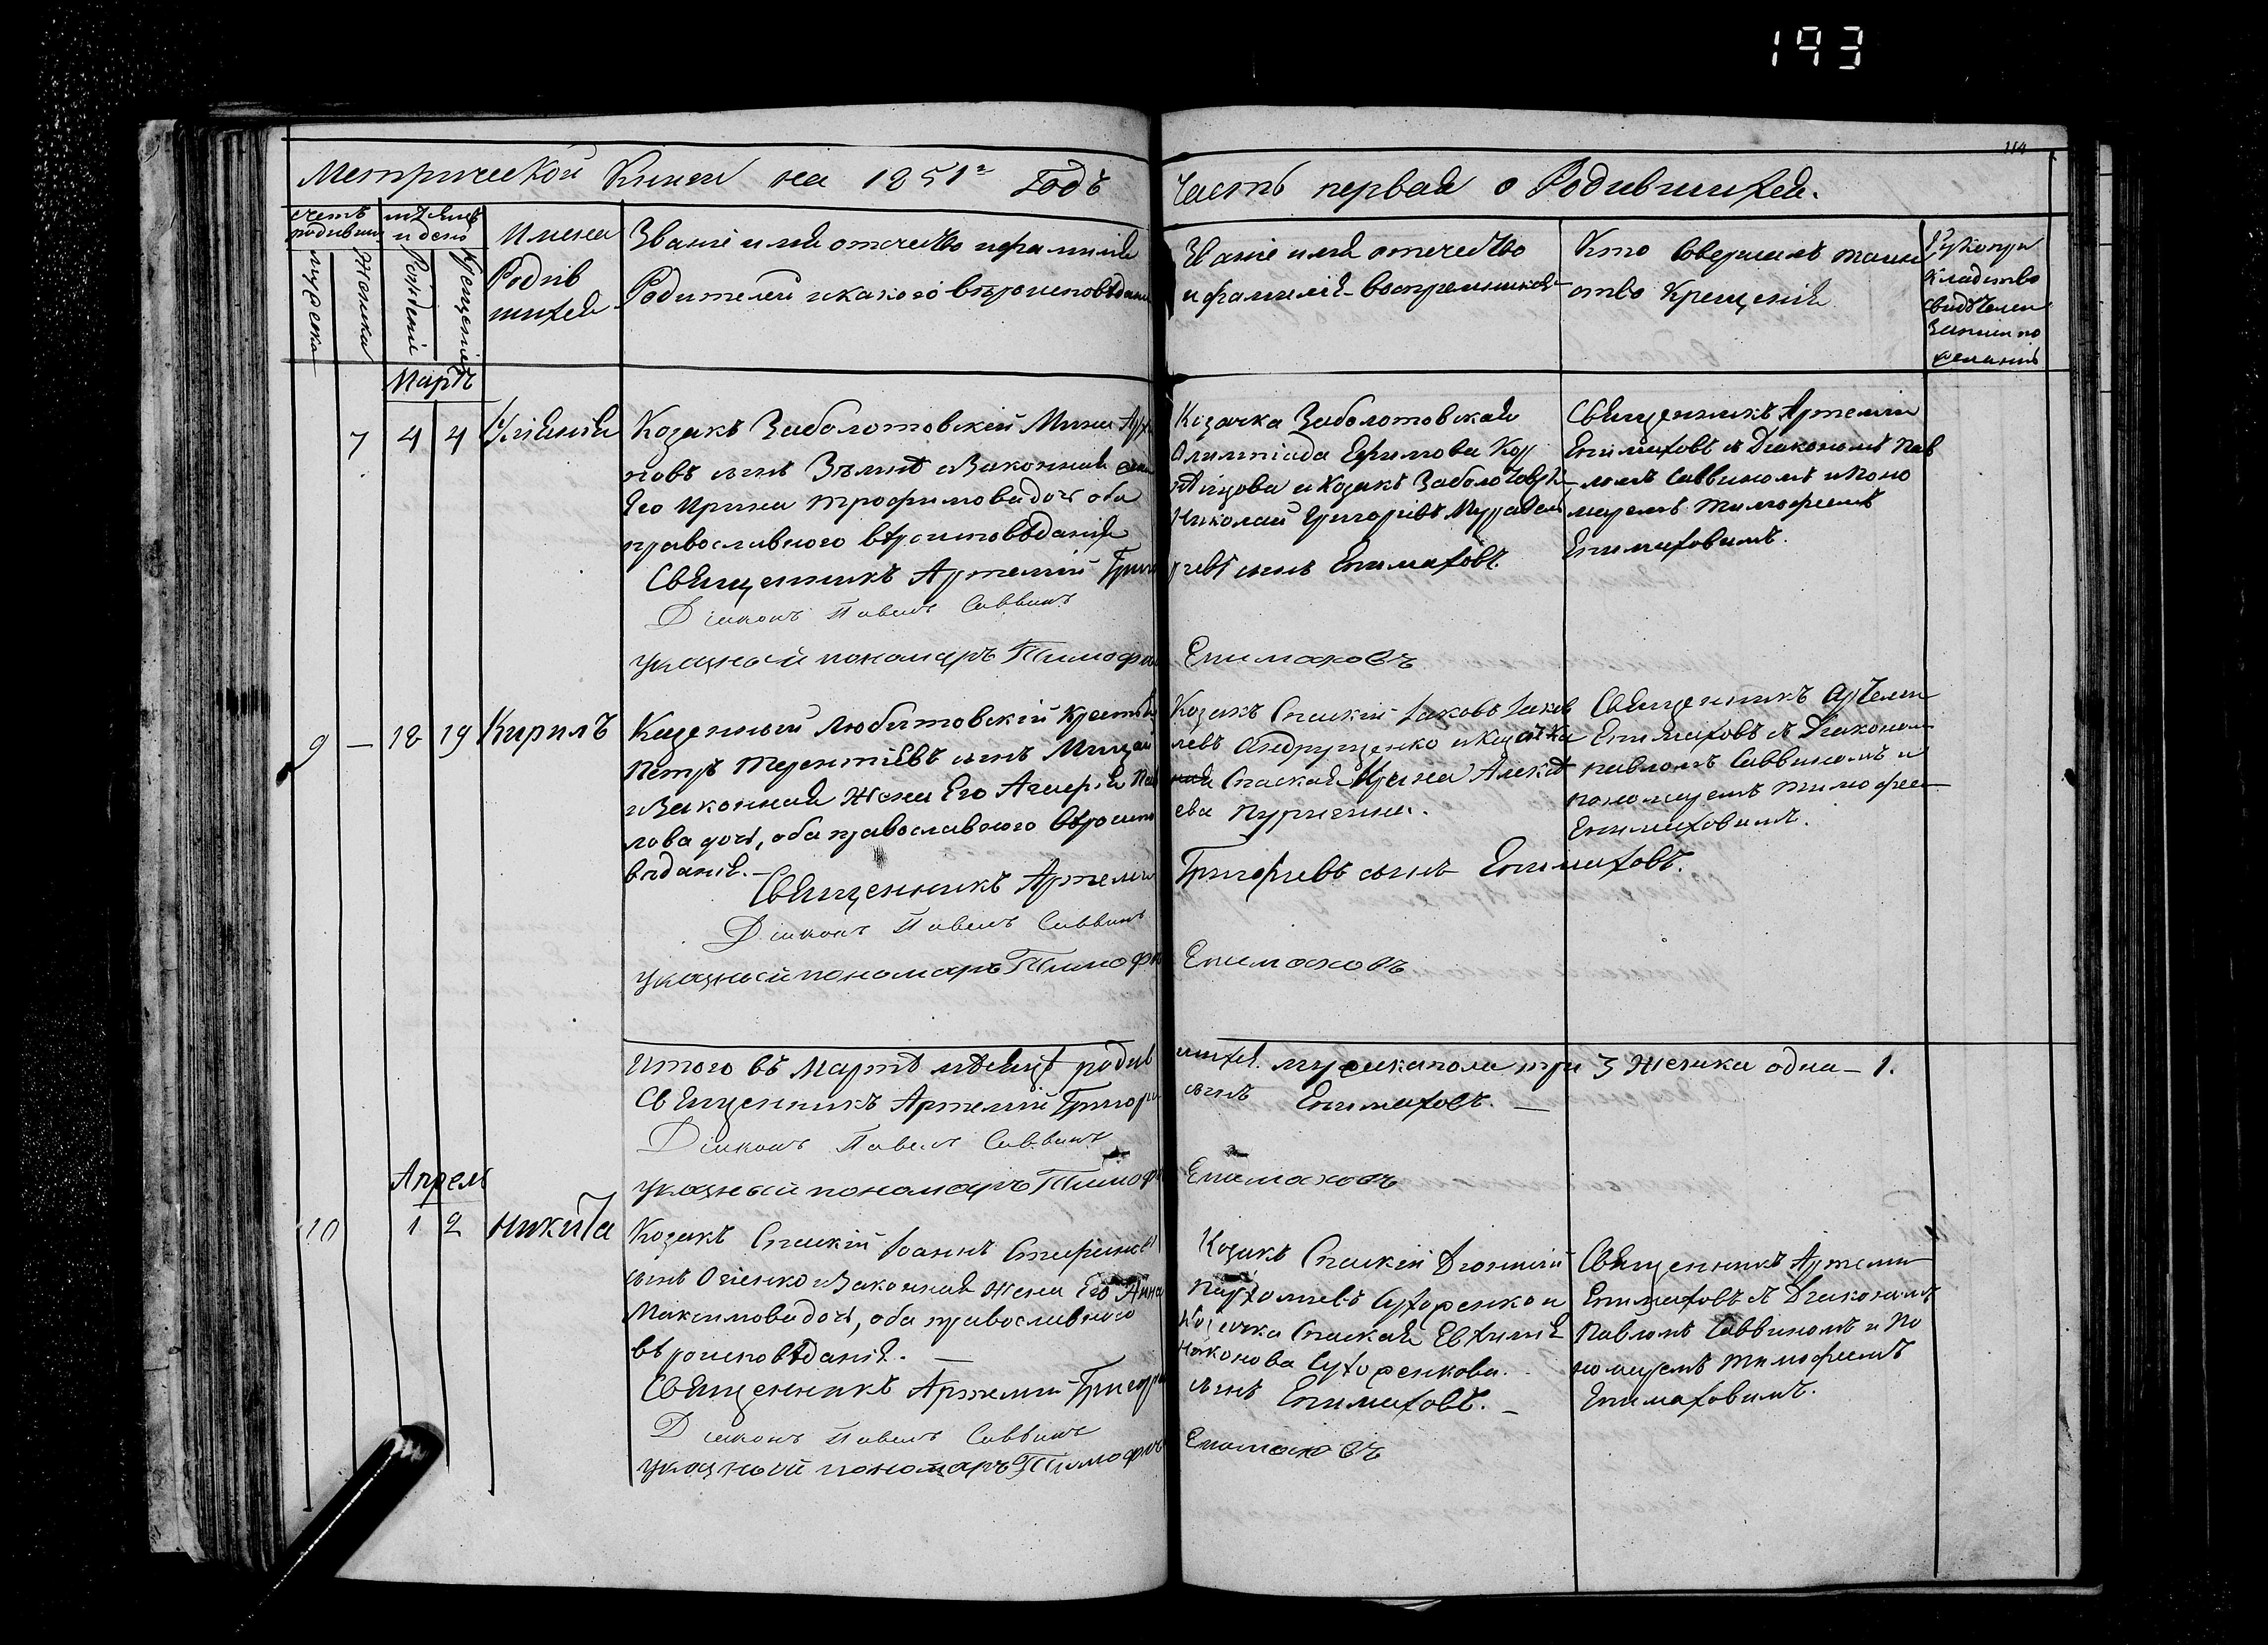 193
114
Метрической Книги на 1851й Годъ
Часть первая о Родившихся.
счетъ родивших
мѣсяцъ и день
мужеска
женска
Рожденія
Крещенія
Имена
Родив
шихся
Званіе имя отечество и фамилія
Родителей и какого вѣроисповѣданія
Званіе имя отечество
и фамилія воспремниковъ
Кто совершалъ таин
ство Крещенія
Рукопри
кладство
свидѣтелей
записи по
желанію
Мартъ
7 4 4
Козакъ Заболотовскій
новъ сынъ и законная
Его Ирина Трофимова дочь оба
православного вѣроисповѣданія
Козачка Заболотовская
Олимпіада Ефимова
и Козакъ
Николай Григорьевъ
Священникъ Артемій
Епимаховъ съ Діакономъ Пав
ломъ Саввиномъ и Поно
маремъ Тимофеемъ
Епимаховимъ.
Священникъ Артемій Григо
рьевъ сынъ Епимаховъ.
Діаконъ Павелъ Саввинъ
указный пономарь Тимофей
Епимаховъ
9 — 18 19 Кирилъ
Казенный Любитовскій
Петръ Терентіевъ сынъ
и Законная Жена Его
лова дочь, оба православного вѣроиспо
вѣданія.
Козакъ Спаскій Іаковъ Іаков
левъ Андрущенко и
Спаская Ирина Алексѣ
ева
Священникъ Артемій
Епимаховъ съ Діакономъ
Павломъ Саввиномъ и
пономаремъ Тимофеем
Епимаховимъ.
Священникъ Артемій
Григорьевъ сынъ Епимаховъ.
Діаконъ Павелъ Саввинъ
указный пономарь Тимофей
Епимаховъ
Итого въ Мартѣ мѣсяцѣ родив
шихся мужска пола три 3 женска одна — 1.
Священникъ Артемій Григорьевъ
сынъ Епимаховъ. —
Діаконъ Павелъ Саввинъ
указный пономарь Тимофей
Епимаховъ
Апрель
10 1 2 Никита
Козакъ Спаскій Іоаннъ Стефановъ
сынъ Огіенко и Законная Жена Его Анна
Максимова дочь, оба православного
вѣроисповѣданія. —
Козакъ Спаскій Діонисій
Пархоміевъ Сухоренко и
Козачка Спаская Евфимія
Никонова Сухоренкова.
Священникъ Артемій
Епимаховъ съ Діакономъ
Павломъ Саввиномъ и По
номаремъ Тимофеемъ
Епимаховимъ.
Священникъ Артемій Григорьевъ
сынъ Епимаховъ. —
Діаконъ Павелъ Саввинъ
указный пономарь Тимофей
Епимаховъ